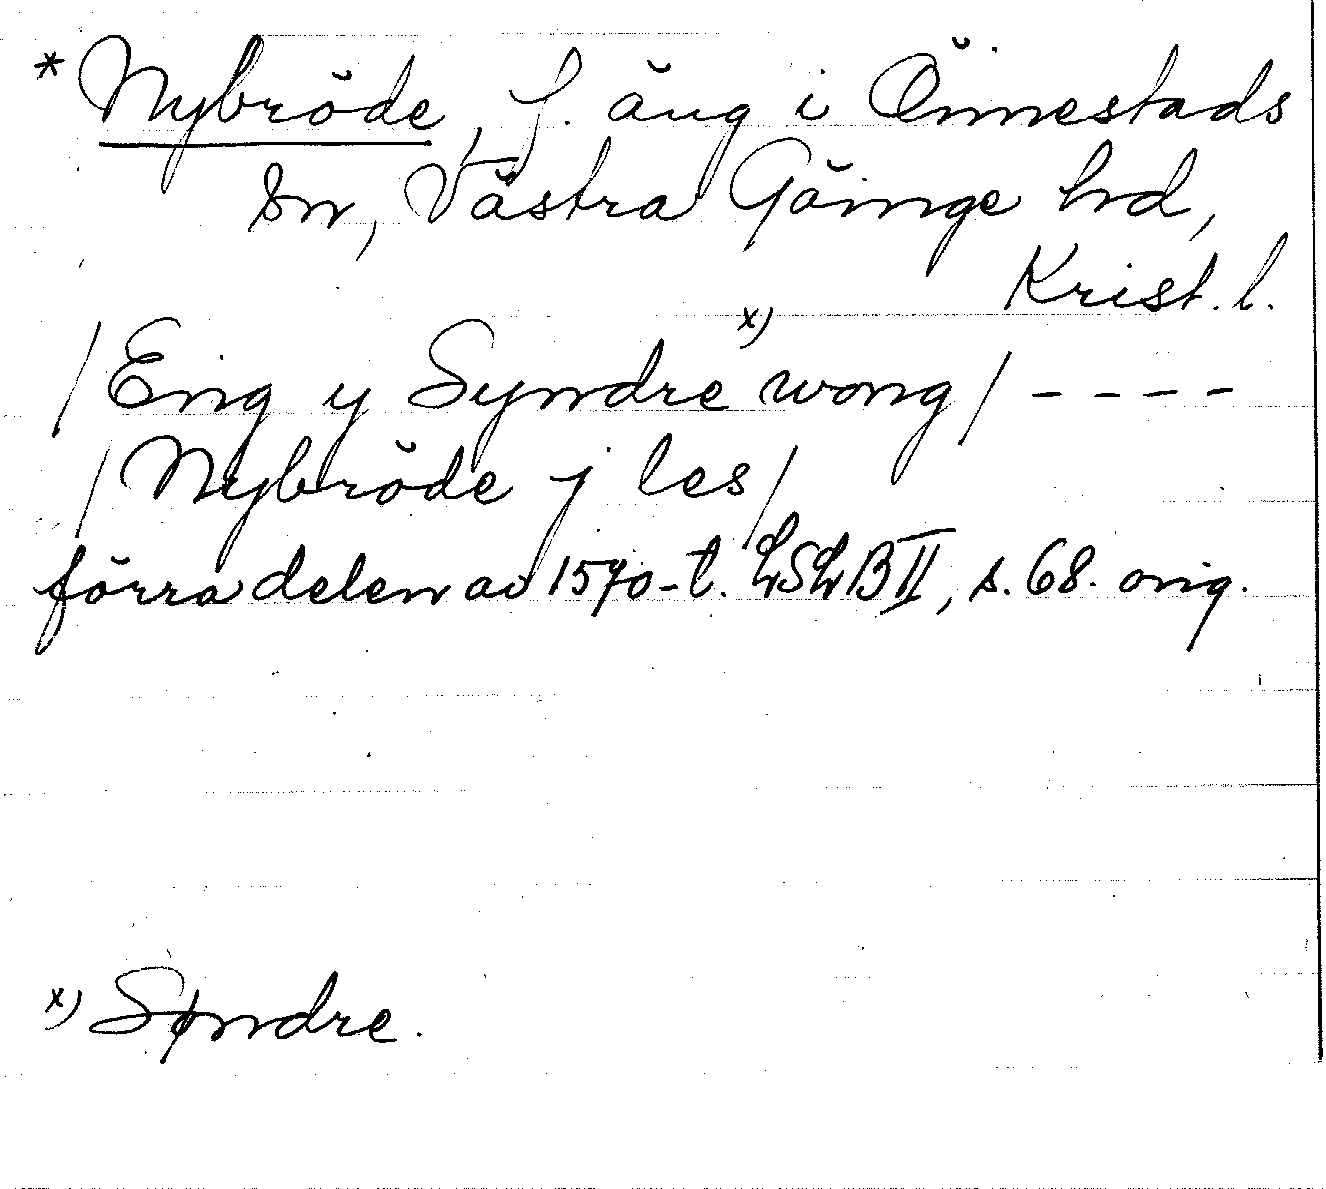 * Nybröde, f. äng i Önnestads
sn, Västra Göinge hd,
Krist. l.
/Eng y Syndre x) wong/ - - - -
/Nybröde j les/
förra delen av 1570-t. LSLB II, s. 68. orig.
x) Søndre.